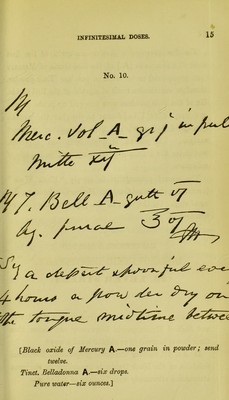 INFINITESIMAL DOSES. 15
No. 10.
Merc. Sol A grj in pul
mitte xij
T. Bell A gutt vj
Aq. purae ℥vj
a dessert spoonful
4 hours a powder dry on
the tongue midtime betwee
[Black oxide of Mercury A.—one grain in powder; send
twelve.
Tinct. Belladonna A.—six drops.
Pure water—six ounces.]